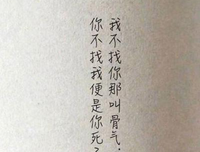 我不找你那叫骨气，
你不找我便是你死